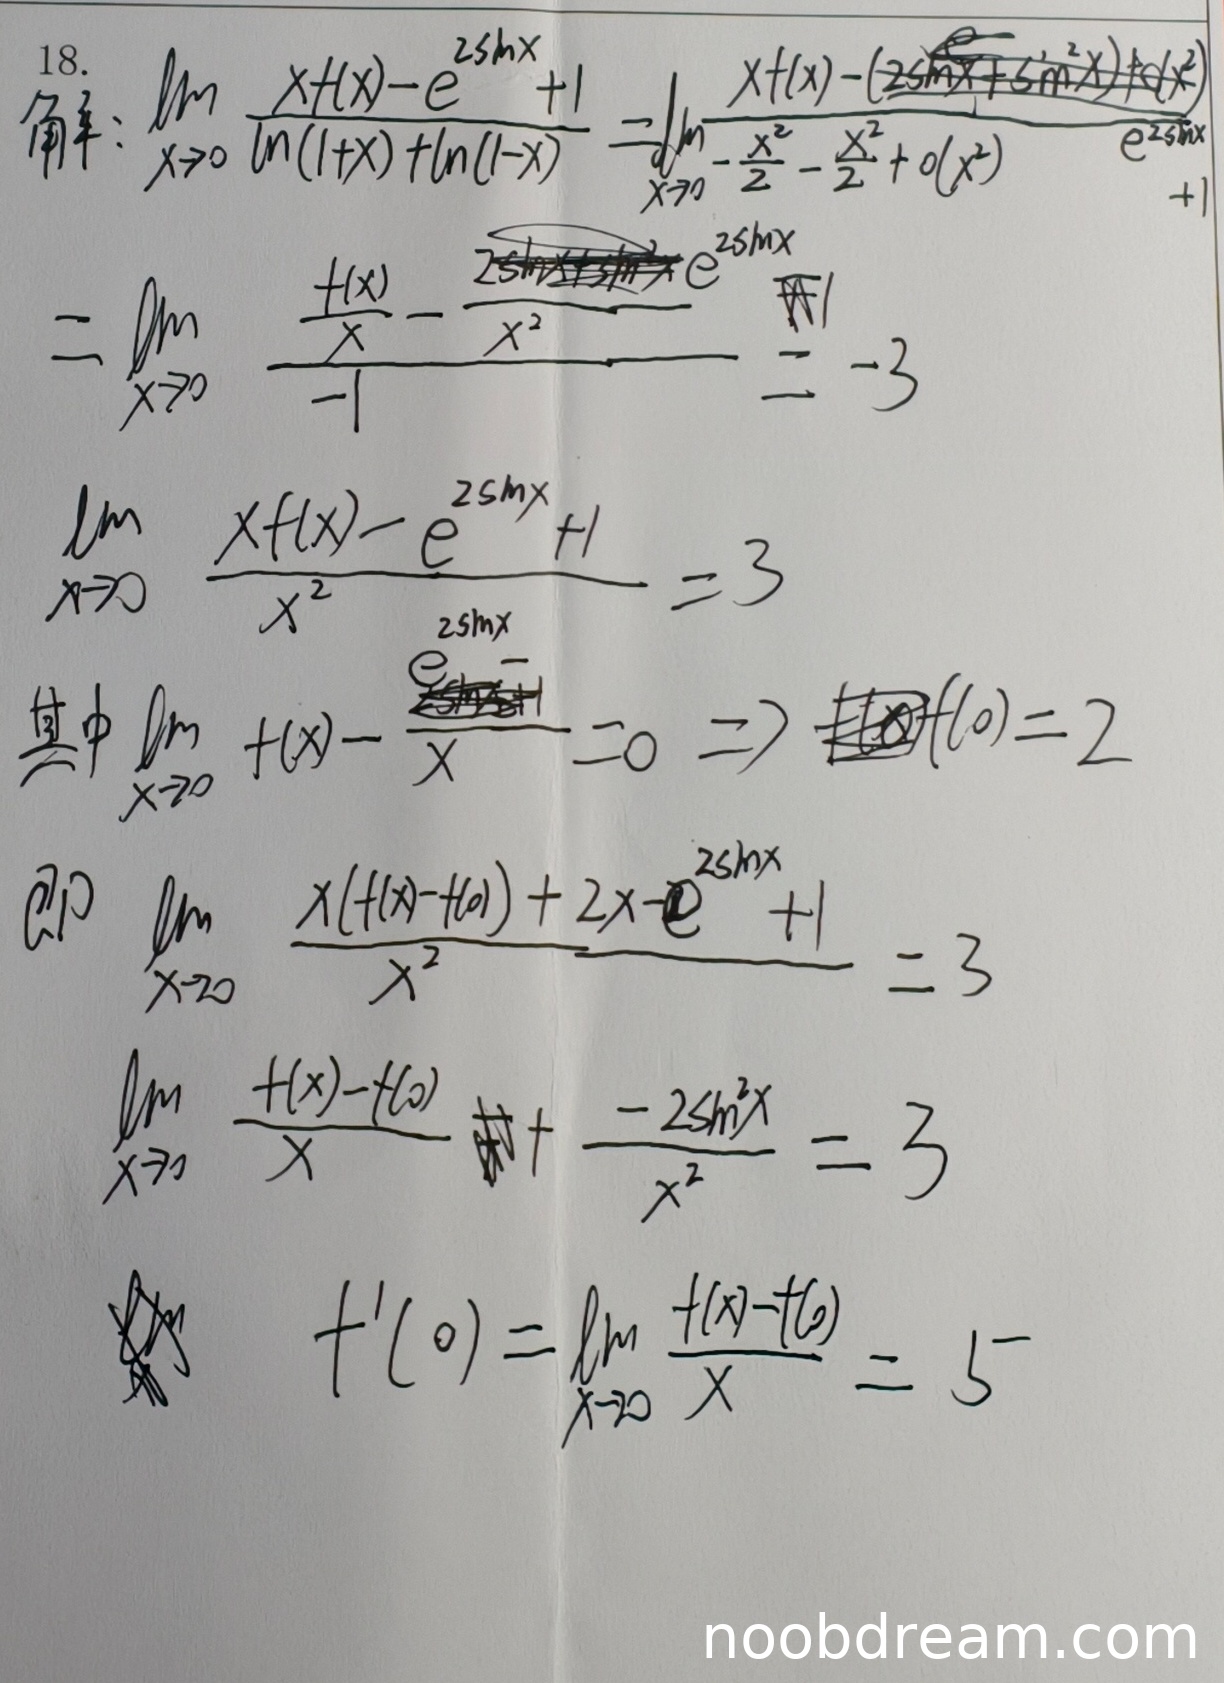 18.
解: lim x→0 (xf(x) - e^{2sinx} + 1) / (ln(1+x) + ln(1-x)) = lim x→0 (xf(x) - e^{2sinx} + 1) / (-x²/2 - x²/2 + o(x²))
= lim x→0 (f(x)/x - e^{2sinx} / x² 1) / -1 = -3
lim x→0 (xf(x) - e^{2sinx} + 1) / x² = 3
其中 lim x→0 f(x) - (e^{2sinx} -) / x = 0 => f(0) = 2
即 lim x→0 (x(f(x) - f(0)) + 2x - e^{2sinx} + 1) / x² = 3
lim x→0 (f(x) - f(0)) / x + (-2sin²x) / x² = 3
f'(0) = lim x→0 (f(x) - f(0)) / x = 5
noobdream.com